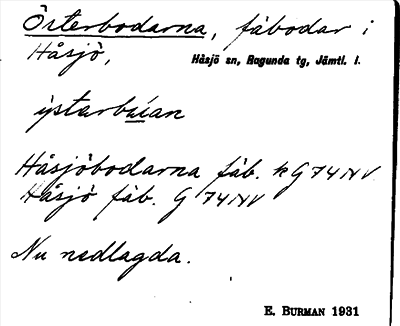 Österbodarna, fäbodar i
Håsjö, Håsjö sn, Ragunda tg, Jämtl. l.
ÿsterbúan
Håsjöbodarna fäb. k G74NV
Håsjö fäb. G74NV
Nu nedlagda.
E. BURMAN 1931